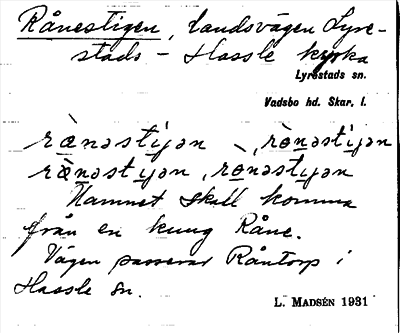 Rånestigen, landsvägen Lyre-
stads - Hassle kyrka
Lyrestads sn.
Vadsbo hd. Skar. l.
rænəstijən - , rònəstijən
ræ̀nəstijən, rònəstijən
Namnet skall komma
från en kung Råne.
Vägen passerar Råntorp i
Hassle sn.
L. MADSÉN 1931